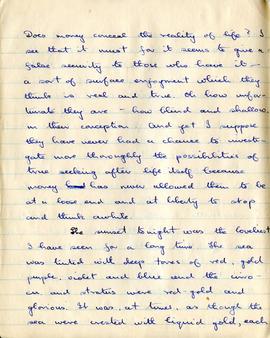 Does money conceal the reality of life? I
see that it must for it seems to give a
false security to those who have it —
a sort of surface enjoyment which they
think is real and true. Oh how unfor-
tunate they are – how blind and shallow
in their conception. And yet I suppose
they have never had a chance to invest-
gate more thoroughly the possibilities of
true seeking after life itself because
money has never allowed them to be
at a loose end and at liberty to stop
and think awhile.
The sunset tonight was the loveliest
I have seen for a long time. The sea
was tinted with deep tones of red, gold
purple, violet and blue and the
and stratus were red-gold and
glorious. It was, at times, as though the
sea were crested with liquid gold, each